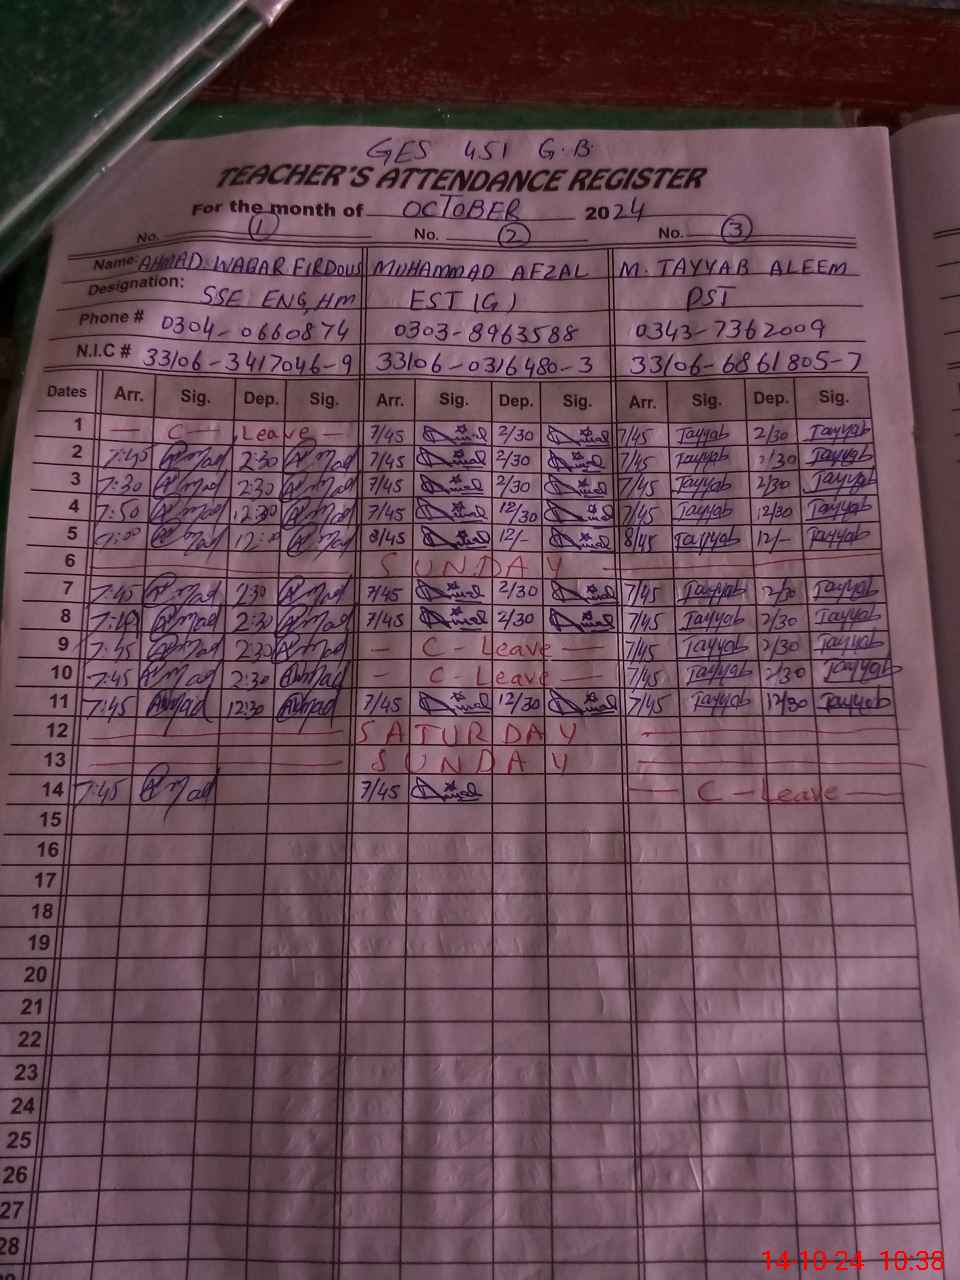 GES 451 G.B.
TEACHER'S ATTENDANCE REGISTER
For the month of OCTOBER 2024
No. 1 No. 2 No. 3
Name: AHMAD WAQAR FIRDOUS MUHAMMAD AFZAL M. TAYYAB ALEEM
Designation: SSE ENG, HM EST (G) PST
Phone # 0304-0660874 0303-8963588 0343-7362009
N.I.C # 33106-3417046-9 33106-0316480-3 33106-6861805-7
Dates Arr. Sig. Dep. Sig. Arr. Sig. Dep. Sig. Arr. Sig. Dep. Sig.
1 — C — Leave — 7/45 2/30 7/45 Tayyab 2/30 Tayyab
2 7:45 Ahmad 2:30 Ahmad 7/45 2/30 7/45 Tayyab 2/30 Tayyab
3 7:30 Ahmad 2:30 Ahmad 7/45 2/30 7/45 Tayyab 2/30 Tayyab
4 7:50 Ahmad 12:30 Ahmad 7/45 12/30 7/45 Tayyab 12/30 Tayyab
5 Ahmad Ahmad 8/45 12/- 8/45 Tayyab 12/- Tayyab
6 SUNDAY
7 7:45 Ahmad 2:30 Ahmad 7/45 2/30 7/45 Tayyab 2/30 Tayyab
8 Ahmad 2:30 Ahmad 7/45 2/30 7/45 Tayyab 2/30 Tayyab
9 7:45 Ahmad 2:30 Ahmad — C - Leave — 7/45 Tayyab 2/30 Tayyab
10 7:45 Ahmad 2:30 Ahmad — C - Leave — 7/45 Tayyab 2/30 Tayyab
11 7:45 Ahmad 12:30 Ahmad 7/45 12/30 7/45 Tayyab 12/30 Tayyab
12 SATURDAY
13 SUNDAY
14 7:45 Ahmad 7/45 — C - Leave —
15
16
17
18
19
20
21
22
23
24
25
26
27
28
14-10-24 10:38